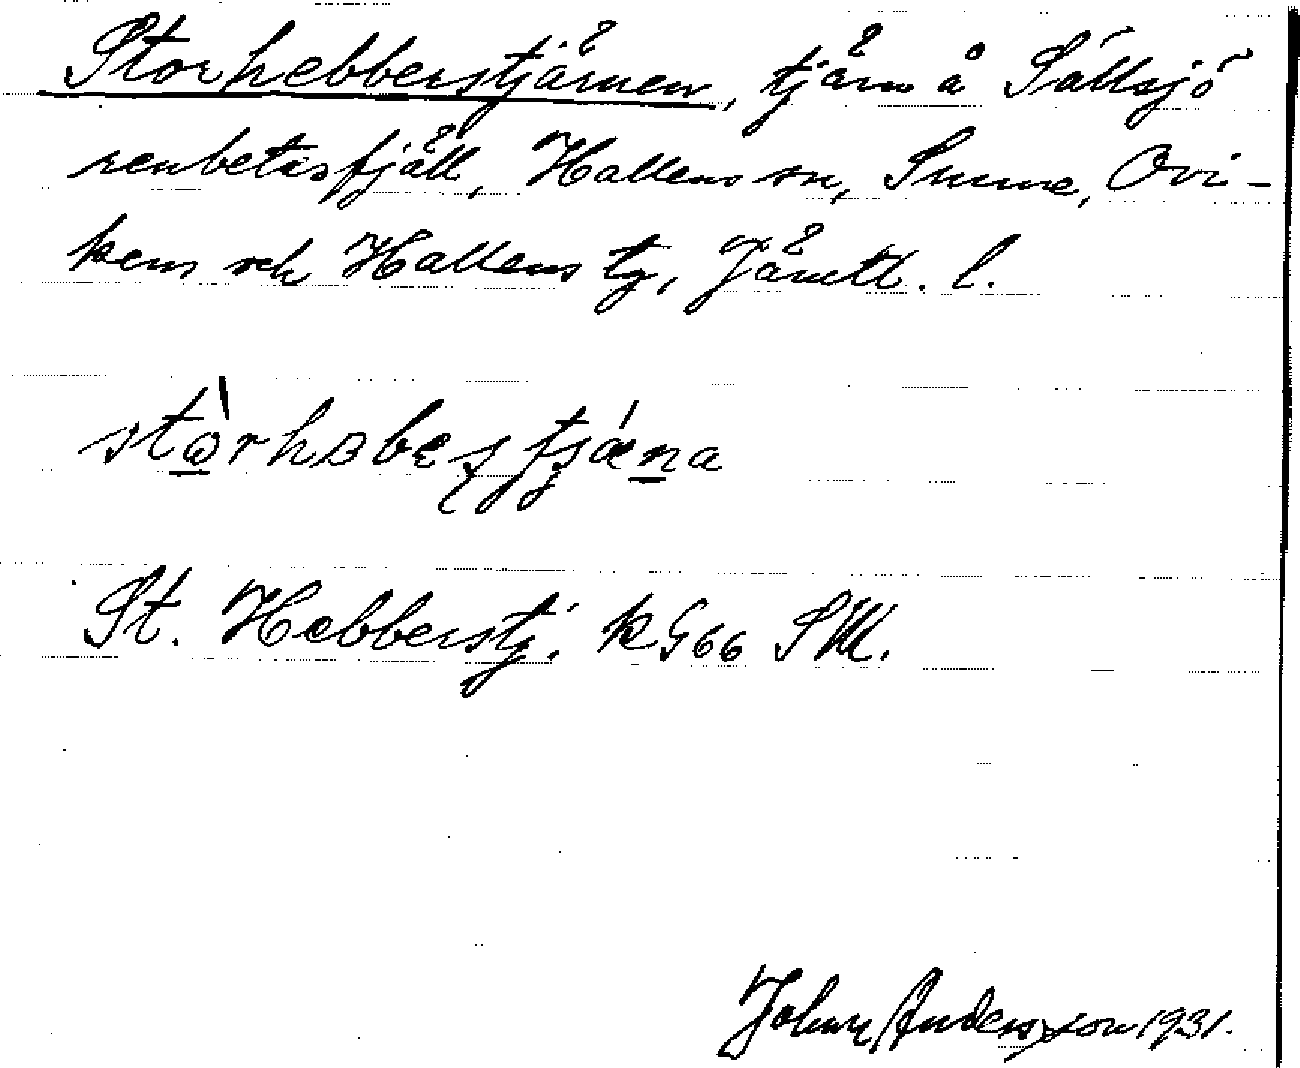 Storhebberstjärnen, tjärn å Sällsjö
renbetesfjäll, Hallens sn, Sunne, Ovi-
kens och Hallens tg, Jämtl. l.
stòrhɞbeʂtjǽna
St. Hebberstj. kG66 SW.
Johnny Andersson 1931.